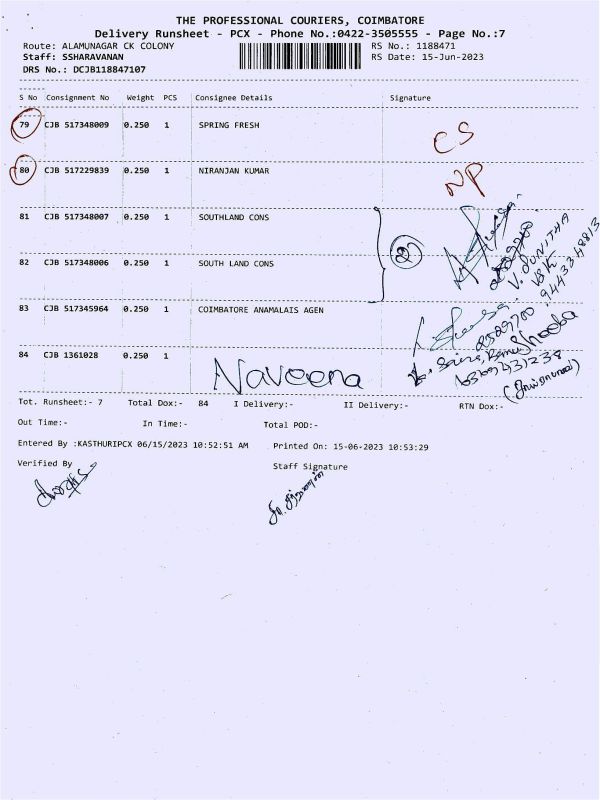 THE PROFESSIONAL COURIERS, COIMBATORE
Delivery Runsheet - PCX - Phone No.:0422-3505555 - Page No.:7
Route: ALAMUNAGAR CK COLONY
RS No.: 1188471
Staff: SSHARAVANAN
RS Date: 15-Jun-2023
DRS No.: DCJB118847107
S No Consignment No Weight PCS Consignee Details Signature
79 CJB 517348009 0.250 1 SPRING FRESH CS
80 CJB 517229839 0.250 1 NIRANJAN KUMAR NP
81 CJB 517348007 0.250 1 SOUTHLAND CONS
2
V. SUNITHA
82 CJB 517348006 0.250 1 SOUTH LAND CONS
83 CJB 517345964 0.250 1 COIMBATORE ANAMALAIS AGEN
84 CJB 1361028 0.250 1 Naveena
Tot. Runsheet:- 7 Total Dox:- 84 I Delivery:- II Delivery:- RTN Dox:-
Out Time:- In Time:- Total POD:-
Entered By :KASTHURIPCX 06/15/2023 10:52:51 AM Printed On: 15-06-2023 10:53:29
Verified By Staff Signature